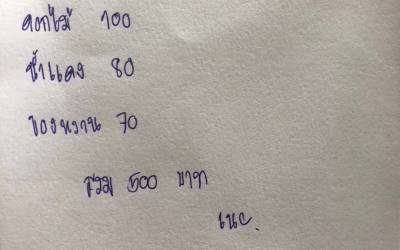 ดอกไม้ 100
น้ำแดง 80
ของหวาน 70
รวม 500 บาท